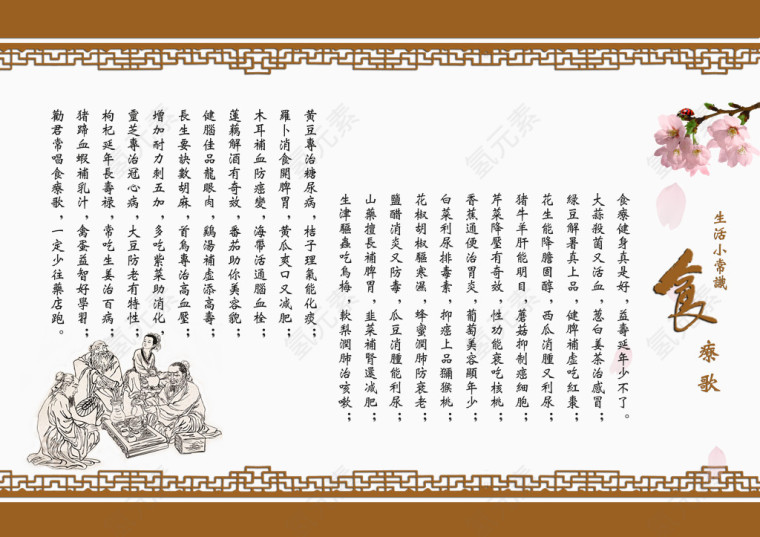 生活小常識
食療歌
食療健身真是好,益壽延年少不了。
大蒜殺菌又活血,蔥白姜茶治感冒;
綠豆解暑真上品,健脾補虛吃紅棗;
花生能降膽固醇,西瓜消腫又利尿;
豬牛羊肝能明目,蘑菇抑制癌細胞;
芹菜降壓有奇效,性功能衰吃核桃;
香蕉通便治胃炎,葡萄美容顯年少;
白菜利尿排毒素,抑癌上品獼猴桃;
花椒胡椒驅寒濕,蜂蜜潤肺防衰老;
鹽醋消炎又防毒,瓜豆消腫能利尿;
山藥擅長補脾胃,韭菜補腎還減肥;
生津驅蟲吃烏梅,軟梨潤肺治咳嗽;
黃豆專治糖尿病,桔子理氣能化痰;
羅卜消食開脾胃,黃瓜爽口又減肥;
木耳補血防癌變,海帶活通腦血栓;
蓮藕解酒有奇效,番茄助你美容貌;
健腦佳品龍眼肉,鷄湯補虛添高壽;
長生要訣數胡麻,首烏專治高血壓;
增加耐力刺五加,多吃紫菜助消化,
靈芝專治冠心病,大豆防老有特性;
枸杞延年長壽祿,常吃生姜治百病;
豬蹄血蝦補乳汁,禽蛋益智好學習;
勸君常唱食療歌,一定少往藥店跑。
氫元素
氫元素
氫元素
氫元素